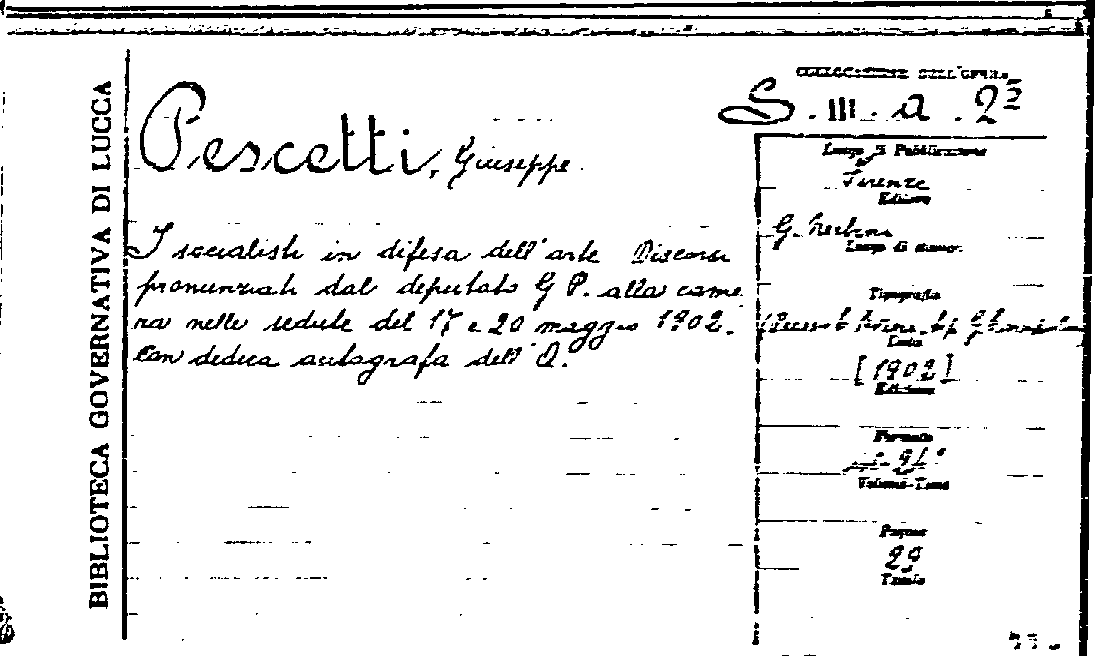 BIBLIOTECA GOVERNATIVA DI LUCCA
COLLOCAZIONE DELL'OPERA
S. III. a. 22
Pescetti, Giuseppe.
I socialisti in difesa dell'arte Discorsi
pronunziati dal deputato G P. alla came
ra nelle sedute del 17 e 20 maggio 1902.
Con dedica autografa dell'A.
Luogo di Pubblicazione
Firenze
Editore
G. Nerbini
Luogo di stamp.
Tipografia
Data
[1902]
Edizione
Formato
Volumi-Tomi
Pagine
29
Tavole